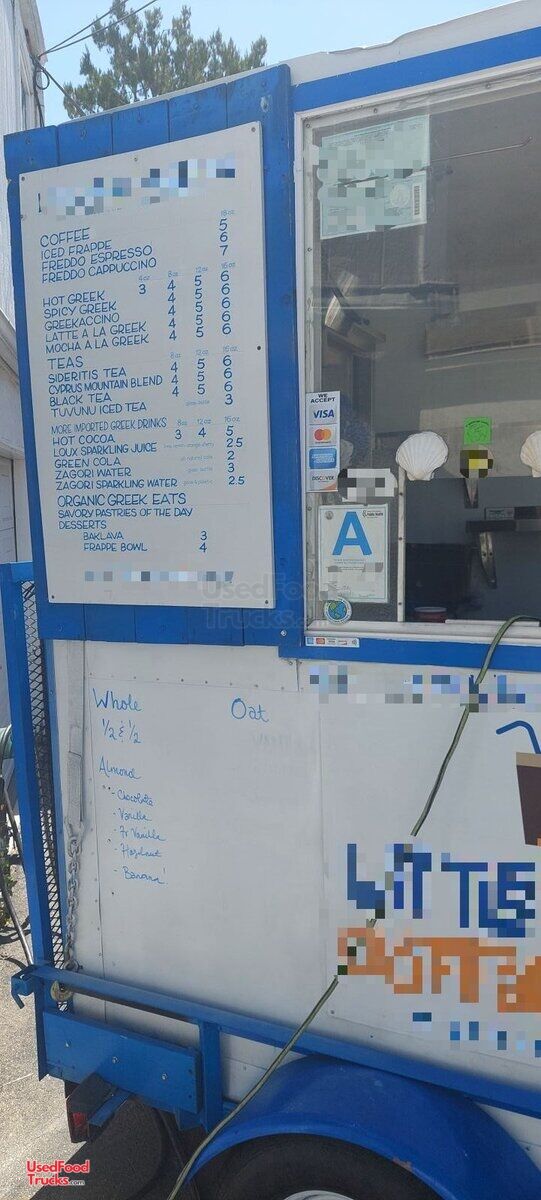 16 oz
COFFEE 5
ICED FRAPPE 6
FREDDO ESPRESSO 7
FREDDO CAPPUCCINO
4 oz 8 oz 12 oz 16 oz
HOT GREEK 3 4 5 6
SPICY GREEK 4 5 6
GREEKACCINO 4 5 6
LATTE A LA GREEK 4 5 6
MOCHA A LA GREEK 4 5 6
TEAS 8 oz 12 oz 16 oz
SIDERITIS TEA 4 5 6
CYPRUS MOUNTAIN BLEND 4 5 6
BLACK TEA 4 5 6
TUVUNU ICED TEA glass bottle 3
MORE IMPORTED GREEK DRINKS 8 oz 12 oz 16 oz
HOT COCOA 3 4 5
LOUX SPARKLING JUICE 2.5
GREEN COLA all natural cola 2
ZAGORI WATER glass bottle 3
ZAGORI SPARKLING WATER 2.5
ORGANIC GREEK EATS
SAVORY PASTRIES OF THE DAY
DESSERTS
BAKLAVA 3
FRAPPE BOWL 4
WE ACCEPT
VISA
DISCOVER
A
UsedFood
Trucks.com
Whole Oat
1/2 & 1/2
Almond
- Chocolate
- Vanilla
- Fr Vanilla
- Hazelnut
- Banana!
LITTLE
UsedFood
Trucks.com